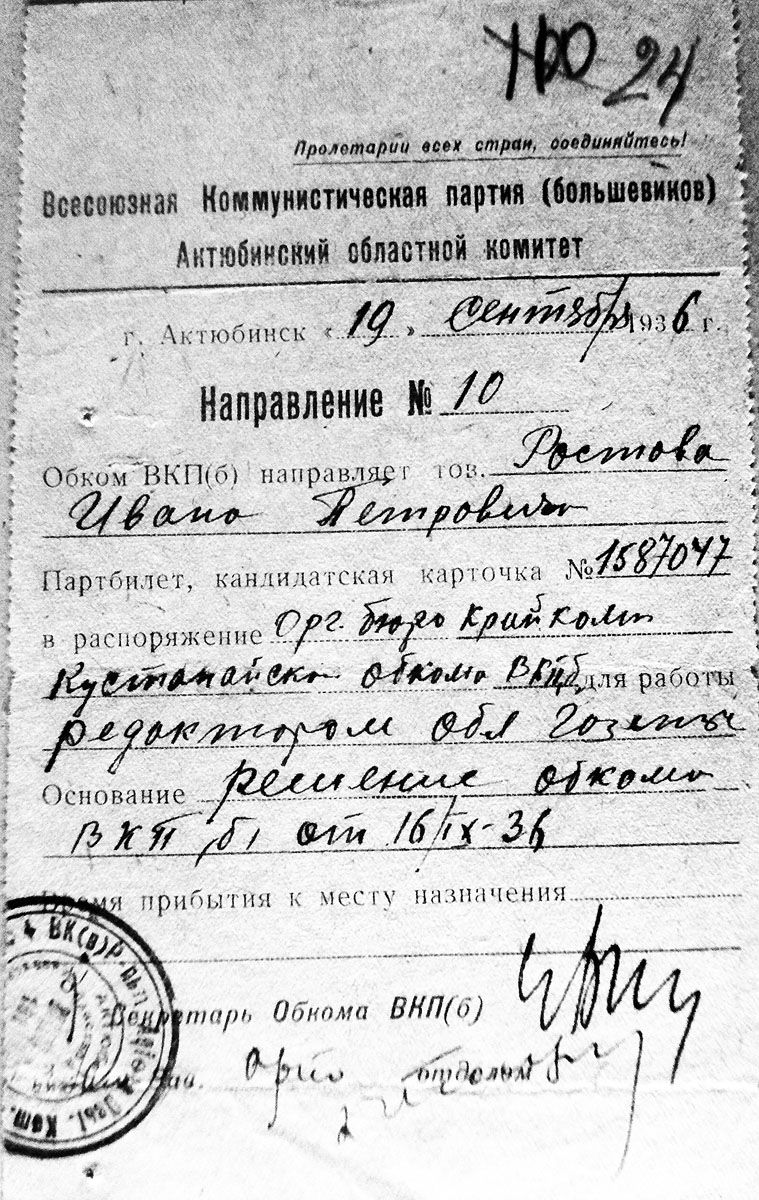 24
Пролетарии всех стран, соединяйтесь!
Всесоюзная Коммунистическая партия (большевиков)
Актюбинский областной комитет
г. Актюбинск « 19 » сентября 1936 г.
Направление № 10
Обком ВКП(б) направляет тов. Ростова
Ивана Петровича
Партбилет, кандидатская карточка № 1587047
в распоряжение Орг. бюро Крайкома
Кустанайск обкома ВКПб для работы
редактором обл газеты
Основание решение обкома
ВКП(б) от 16/IX-36
Время прибытия к месту назначения
ВК(в)Р
Секретарь Обкома ВКП(б)
Зав. отделом
Kom.